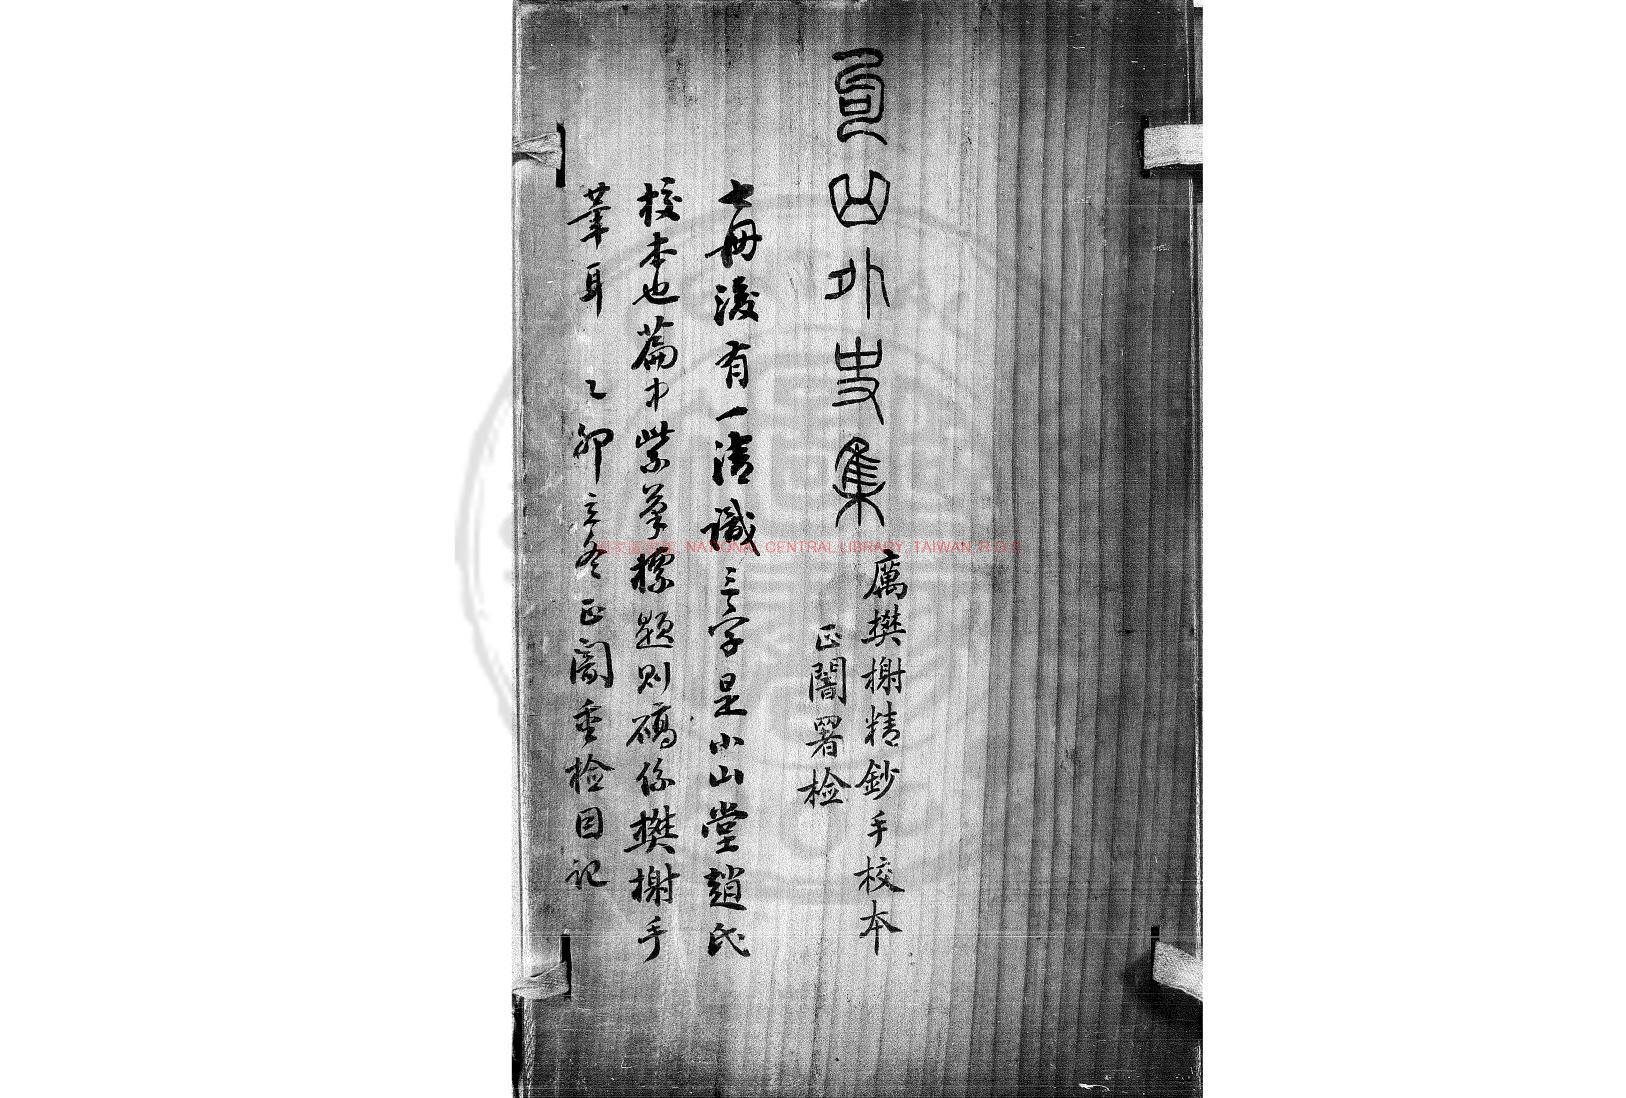 句曲外史集
厲樊榭精鈔手校本
正闇署检
七冊後有一清識三字是小山堂趙氏
校本也篇中紫筆標題則碻係樊榭手
筆耳 乙卯立冬正闇重检因記
NATIONAL CENTRAL LIBRARY, TAIWAN, R.O.C